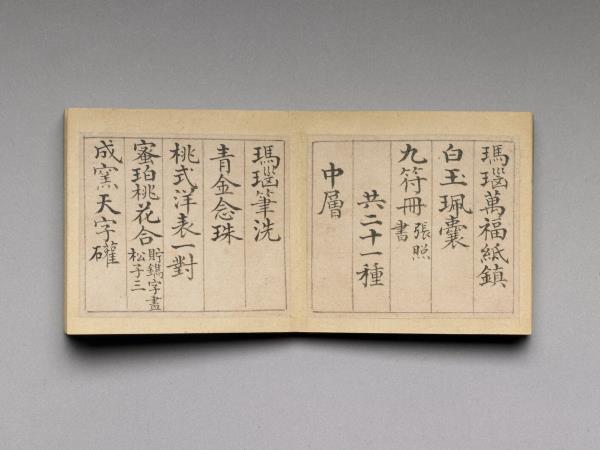 瑪瑙萬福紙鎮
白玉珮囊
九符冊張照書
共二十一種
中層
瑪瑙筆洗
青金念珠
桃式洋表一對
蜜珀桃花合貯鐫字盡松子三
成窯天字罐